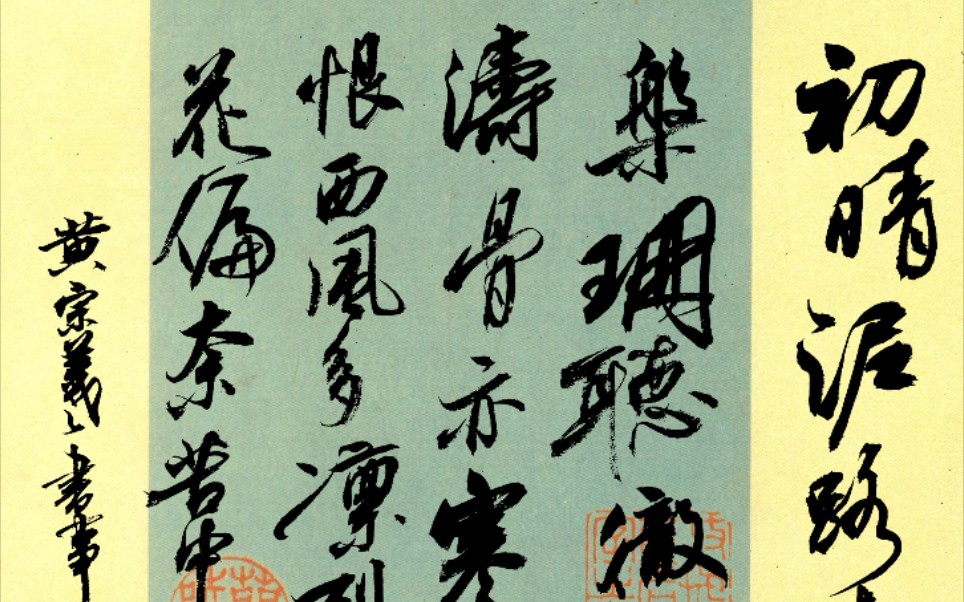 初晴泥路
槃珊聽徹
濤骨亦寒
恨西風多凜
花偏奈苦中
黄宗羲書事